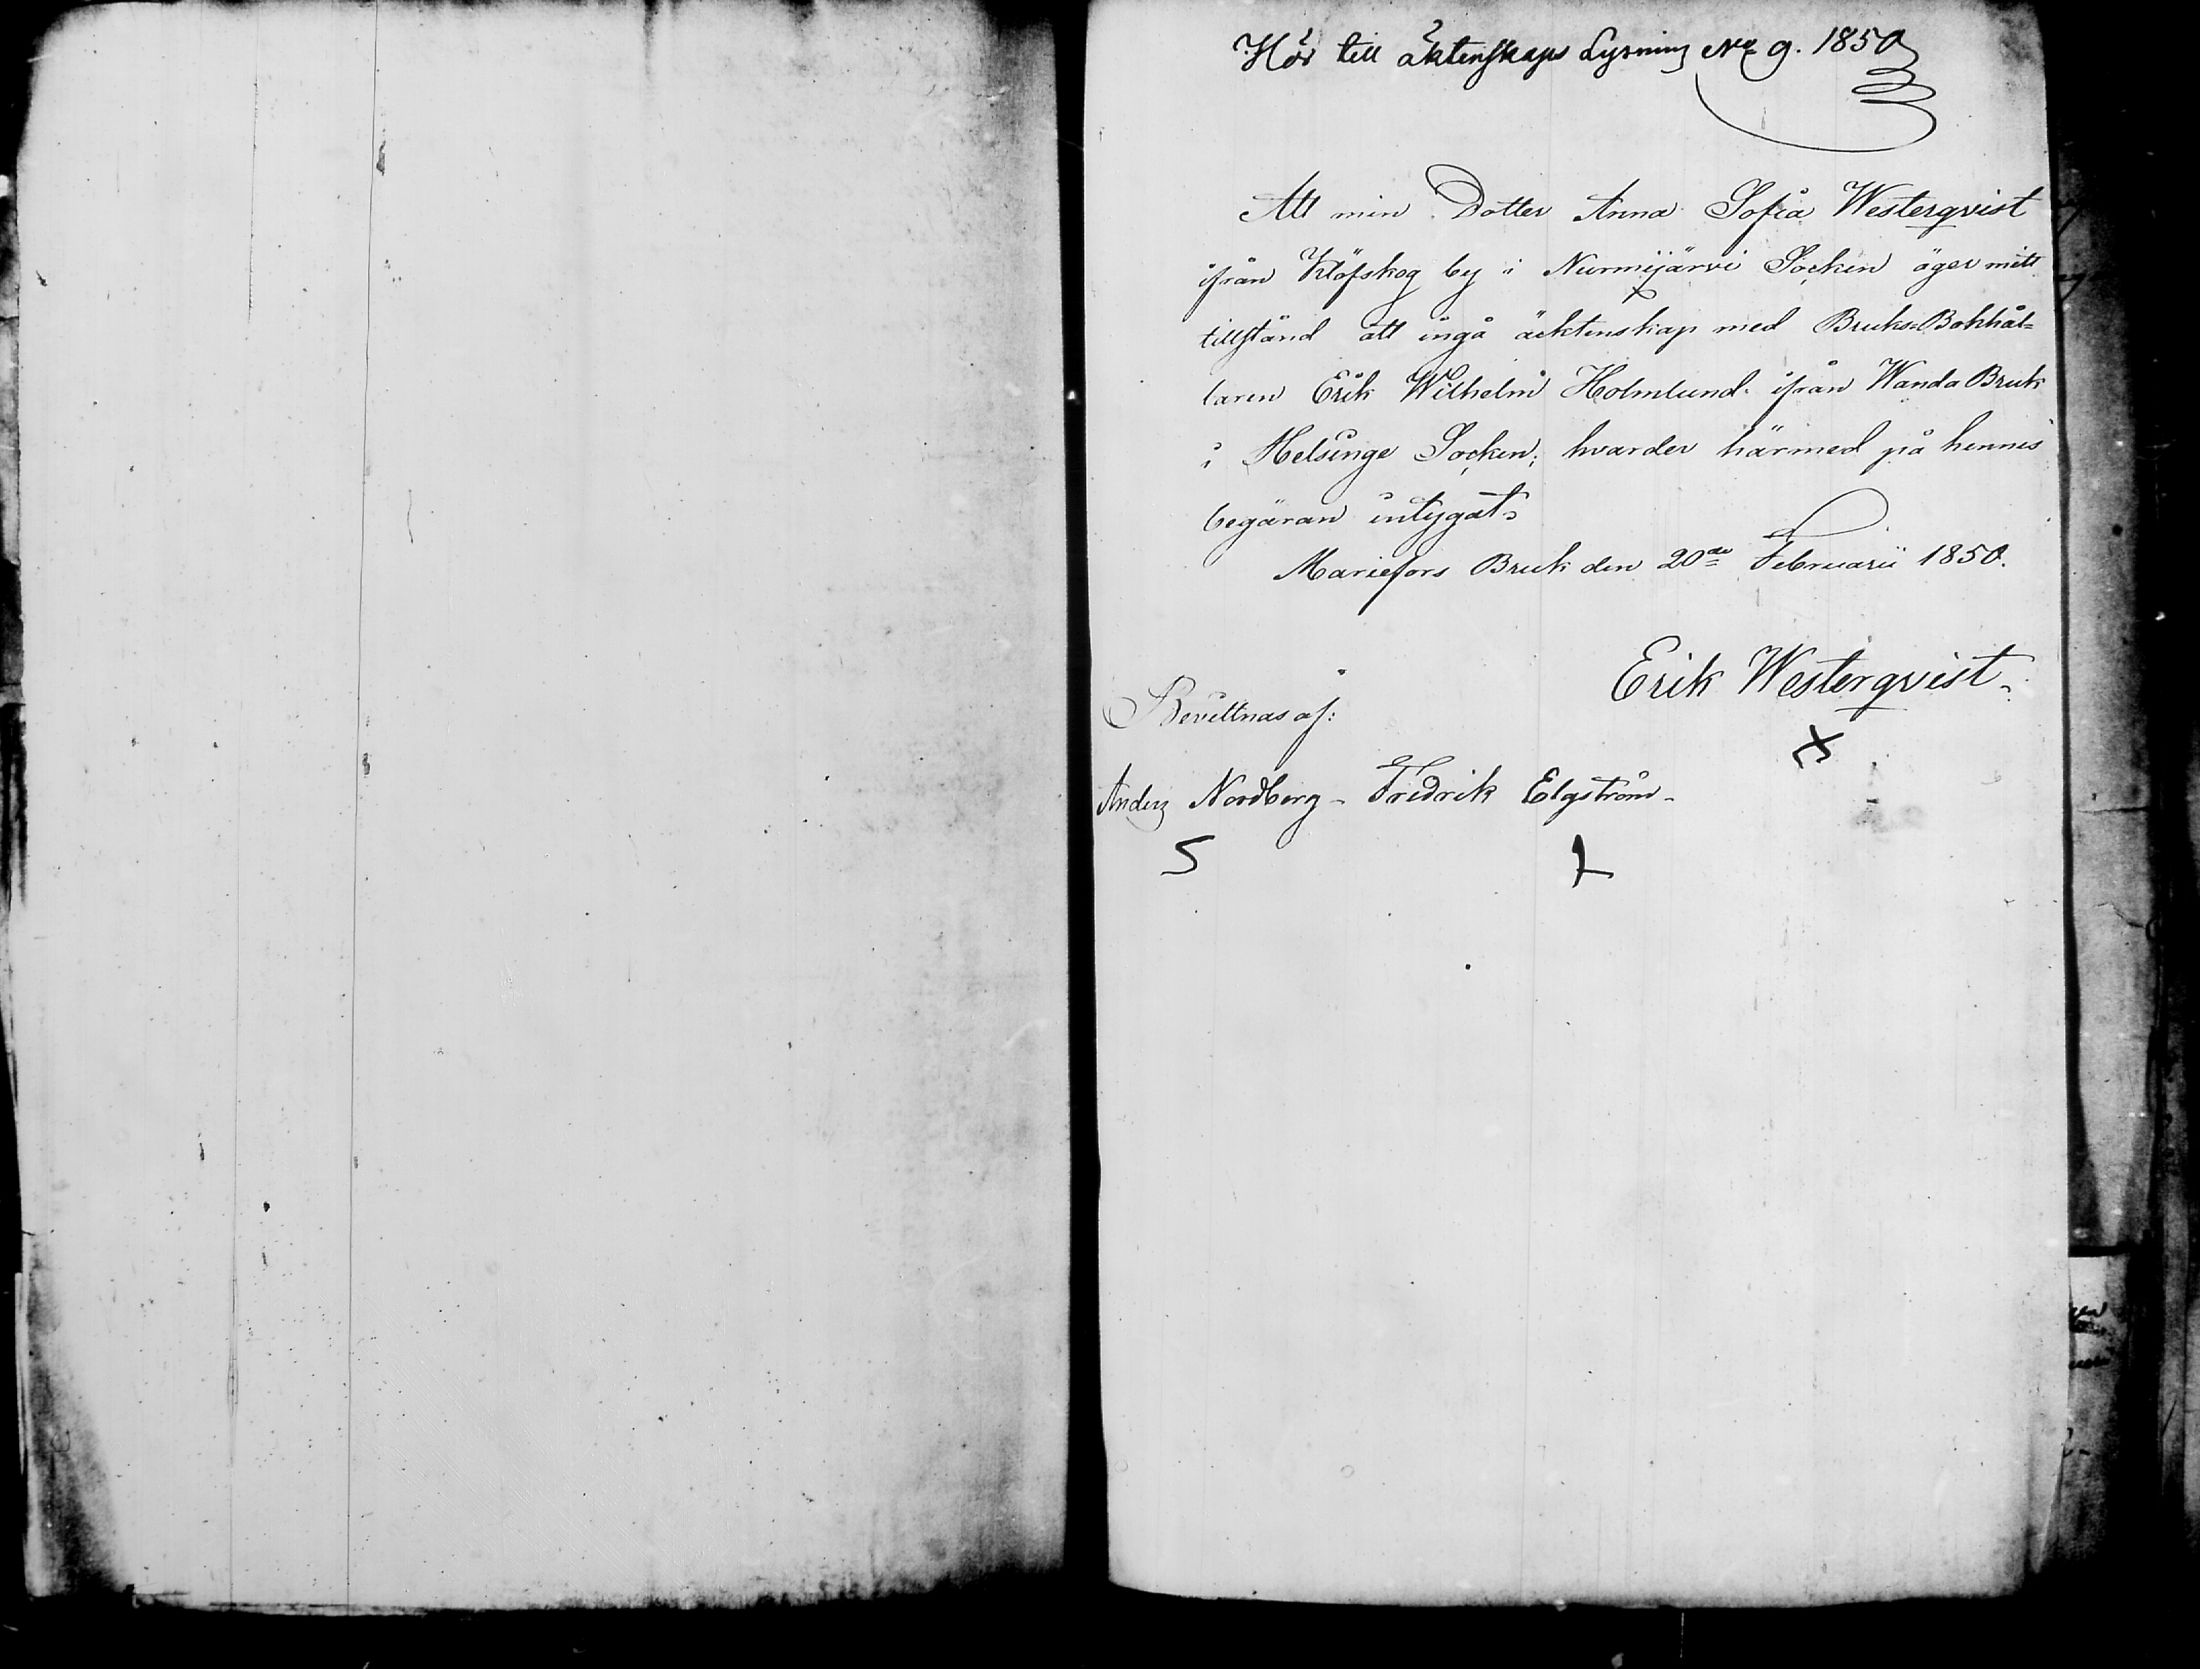 Hör till äktenskaps Lysning No 9. 1850
Att min Dotter Anna Sofia Westerqvist
ifrån Klöfskog by i Nurmijärvi Socken äger mitt
tillstånd att ingå äcktenskap med Bruks=Bokhål=
laren Erik Wilhelm Holmlund ifrån Wanda Bruk
i Helsinge Socken; hvarder härmed på hennes
begäran intygat.
Mariefors Bruk den 20de Februarii 1850.
Erik Westerqvist.
Bevittnas af:
Anders Nordberg - Fredrik Elgström -